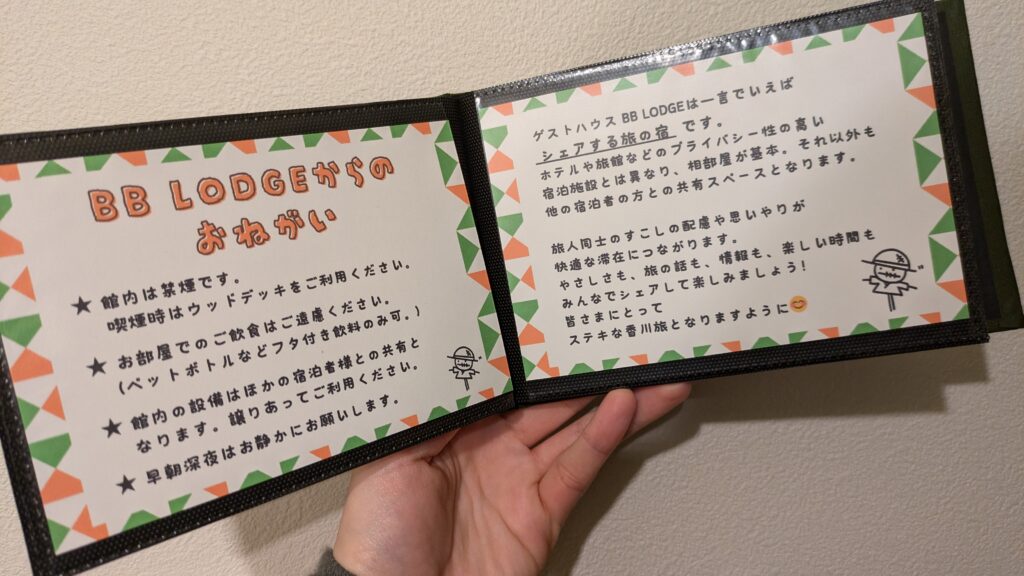 BB LODGEからの
おねがい
★ 館内は禁煙です。
喫煙時はウッドデッキをご利用ください。
★ お部屋でのご飲食はご遠慮ください。
(ペットボトルなどフタ付き飲料のみ可。)
★ 館内の設備はほかの宿泊者様との共有と
なります。譲りあってご利用ください。
★ 早朝深夜はお静かにお願いします。
ゲストハウス BB LODGEは一言でいえば
シェアする旅の宿 です。
ホテルや旅館などのプライバシー性の高い
宿泊施設とは異なり、相部屋が基本。それ以外も
他の宿泊者の方との共有スペースとなります。
旅人同士のすこしの配慮や思いやりが
快適な滞在につながります。
やさしさも、旅の話も、情報も、楽しい時間も
みんなでシェアして楽しみましょう!
皆さまにとって
ステキな香川旅となりますように😊